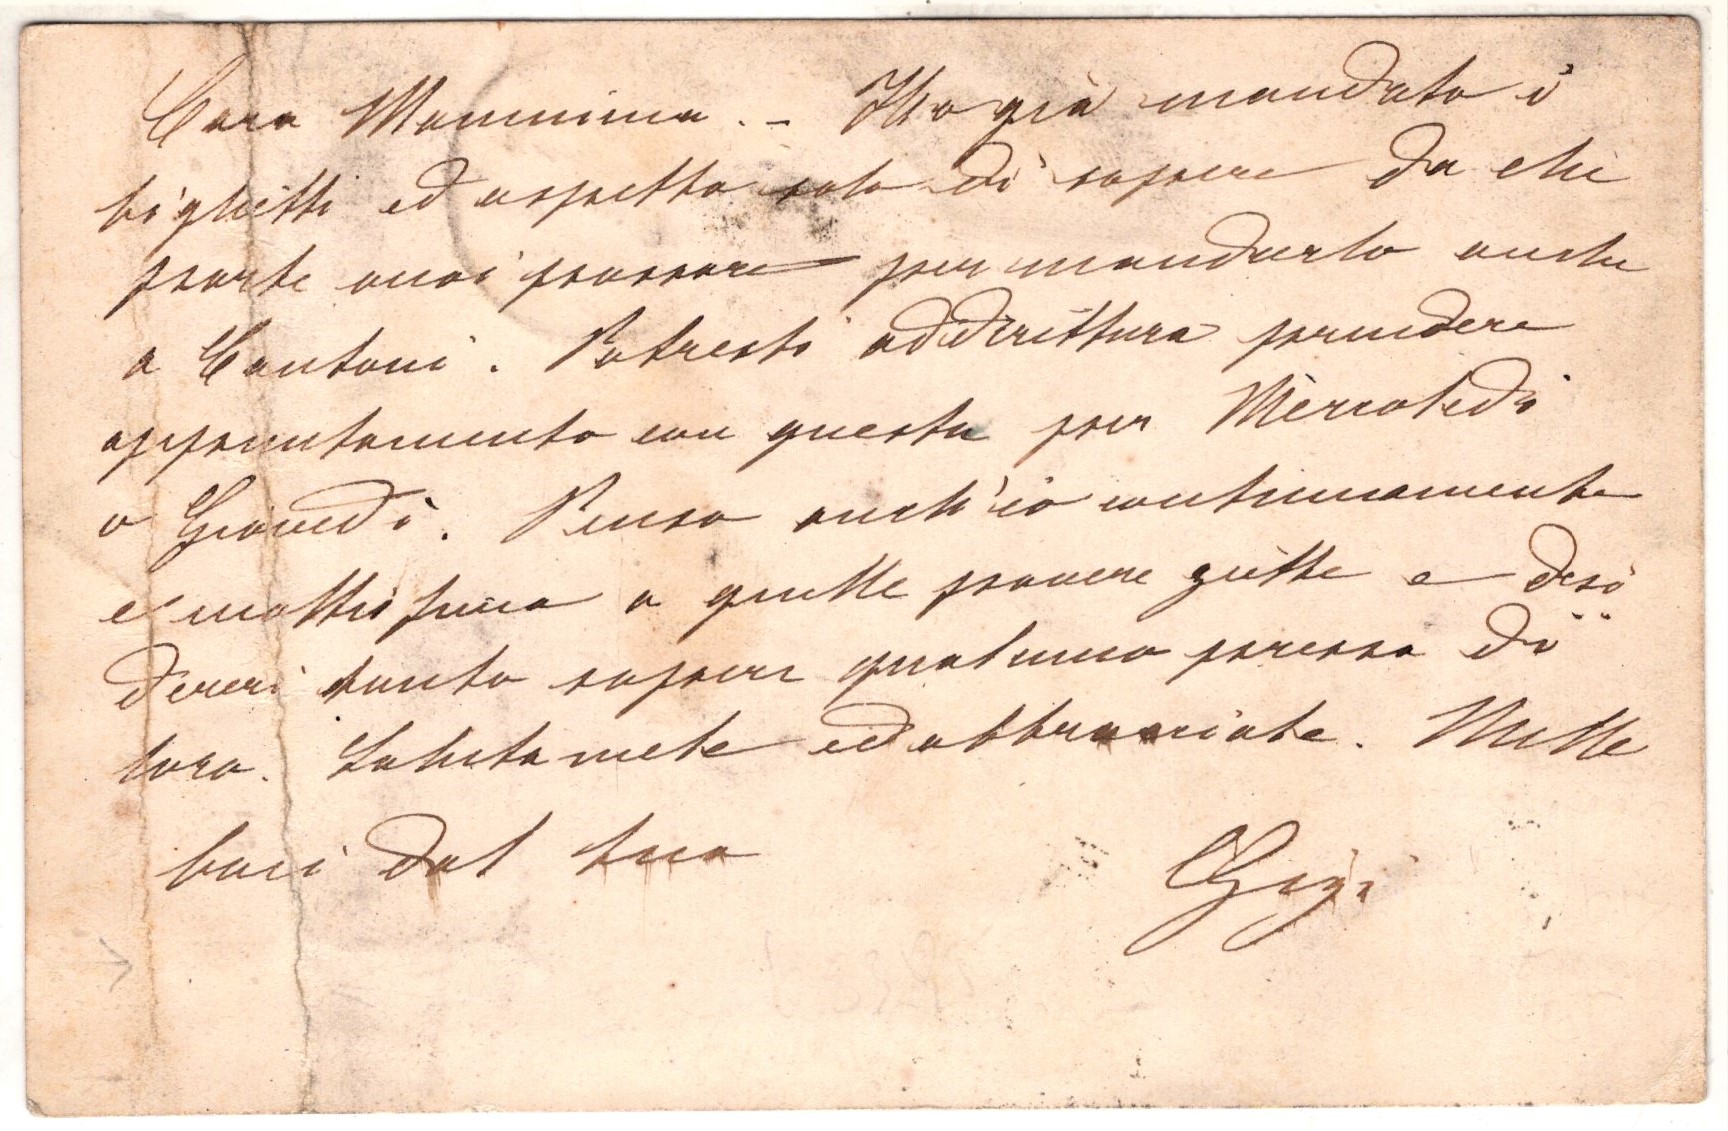 Cara Mammina. - Ho già mandato i
biglietti ed aspetto solo di sapere da che
parte vuoi passare per mandarlo anche
a Cantoni. Potresti addirittura prendere
appuntamento con questa per Mercoledì
o Giovedì. Penso anch'io continuamente
e moltissimo a quelle povere zitte e desi
dererei tanto sapere qualcuno presso di
loro. Salutamele ed abbracciale. Mille
baci dal tuo
Gigi